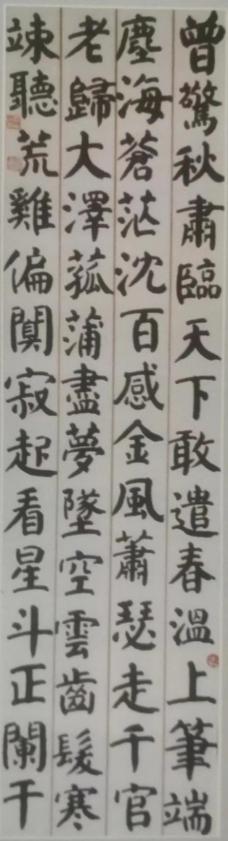 曾驚秋肅臨天下敢遣春溫上筆端
塵海蒼茫沈百感金風蕭瑟走千官
老歸大澤菰蒲盡夢墜空雲齒髮寒
竦聽荒雞偏闃寂起看星斗正闌干